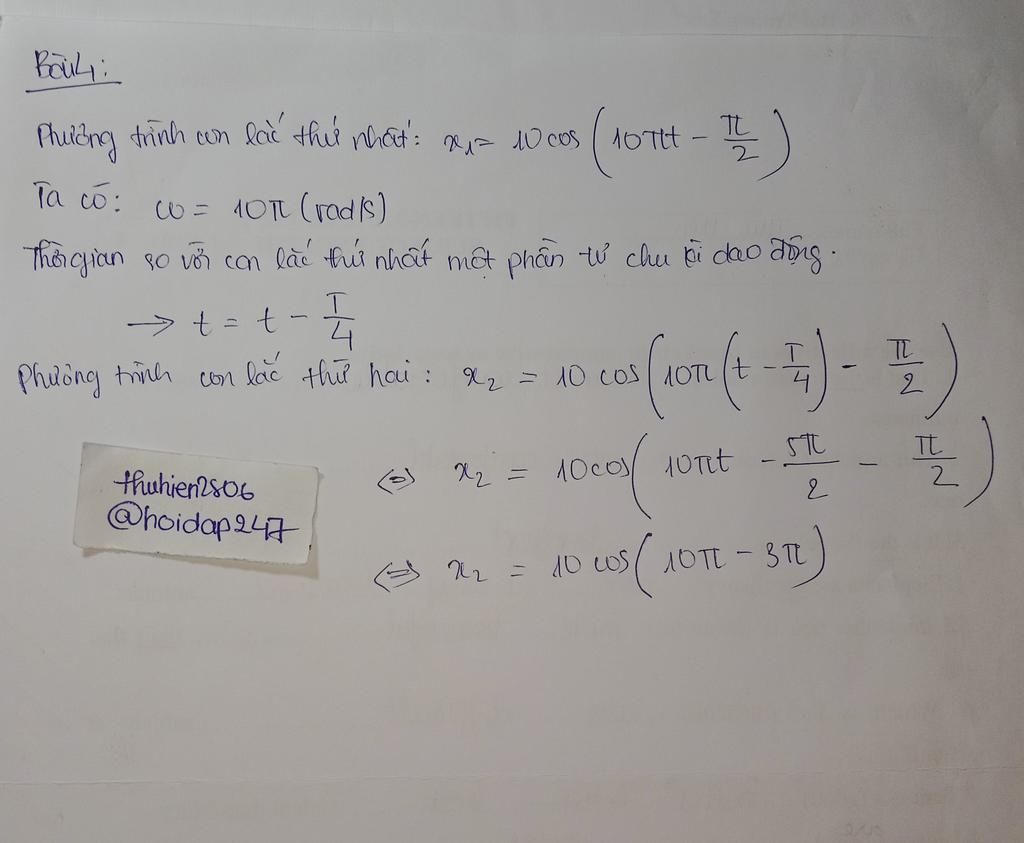 Bài 4:
Phương trình con lắc thứ nhất: x₁ = 10 cos (10πt - π/2)
Ta có: ω = 10π (rad/s)
Thời gian so với con lắc thứ nhất một phần tư chu kì dao động.
→ t = t - T/4
Phương trình con lắc thứ hai: x₂ = 10 cos (10π (t - T/4) - π/2)
⇔ x₂ = 10 cos (10πt - 5π/2 - π/2)
⇔ x₂ = 10 cos (10π - 3π)
thuhien2806
@hoidap247